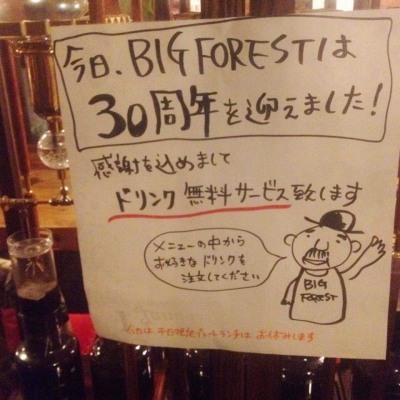 今日、BIG FORESTは
30周年を迎えました!
感謝を込めまして
ドリンク無料サービス致します
メニューの中から
お好きなドリンクを
注文してください
BIG
FOREST
ランチは お休みします